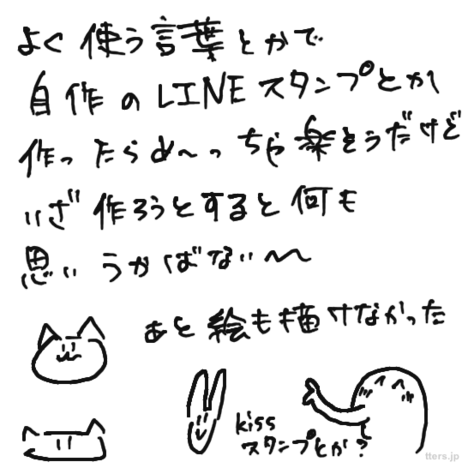 よく使う言葉とかで
自作のLINEスタンプとか
作ったらめ〜っちゃ楽そうだけど
いざ作ろうとすると何も
思いうかばない〜
あと絵も描けなかった
kiss
スタンプとか?
tters.jp